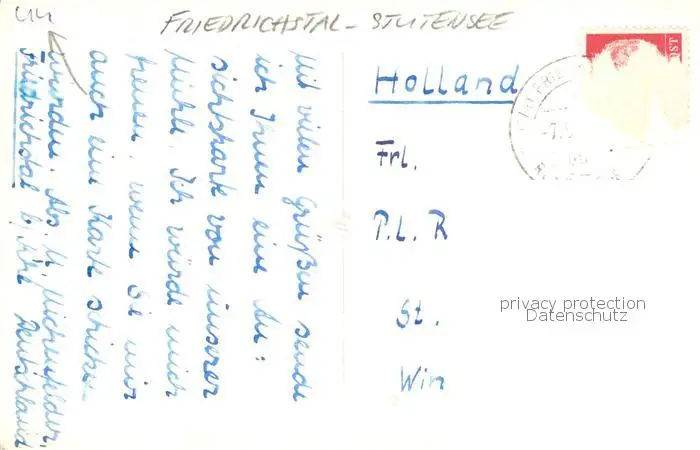 44
FRIEDRICHSTAL - STUTENSEE
Mit vielen Grüßen sende
ich Ihnen eine An=
sichtskarte von unserer
Mühle. Ich würde mich
freuen, wenn Sie mir
auch eine Karte schicken
würden. Abs. U. Michenfelder,
Friedrichstal b. Khe Deutschland
Holland
Frl.
P. L. R
St.
Win
privacy protection
Datenschutz